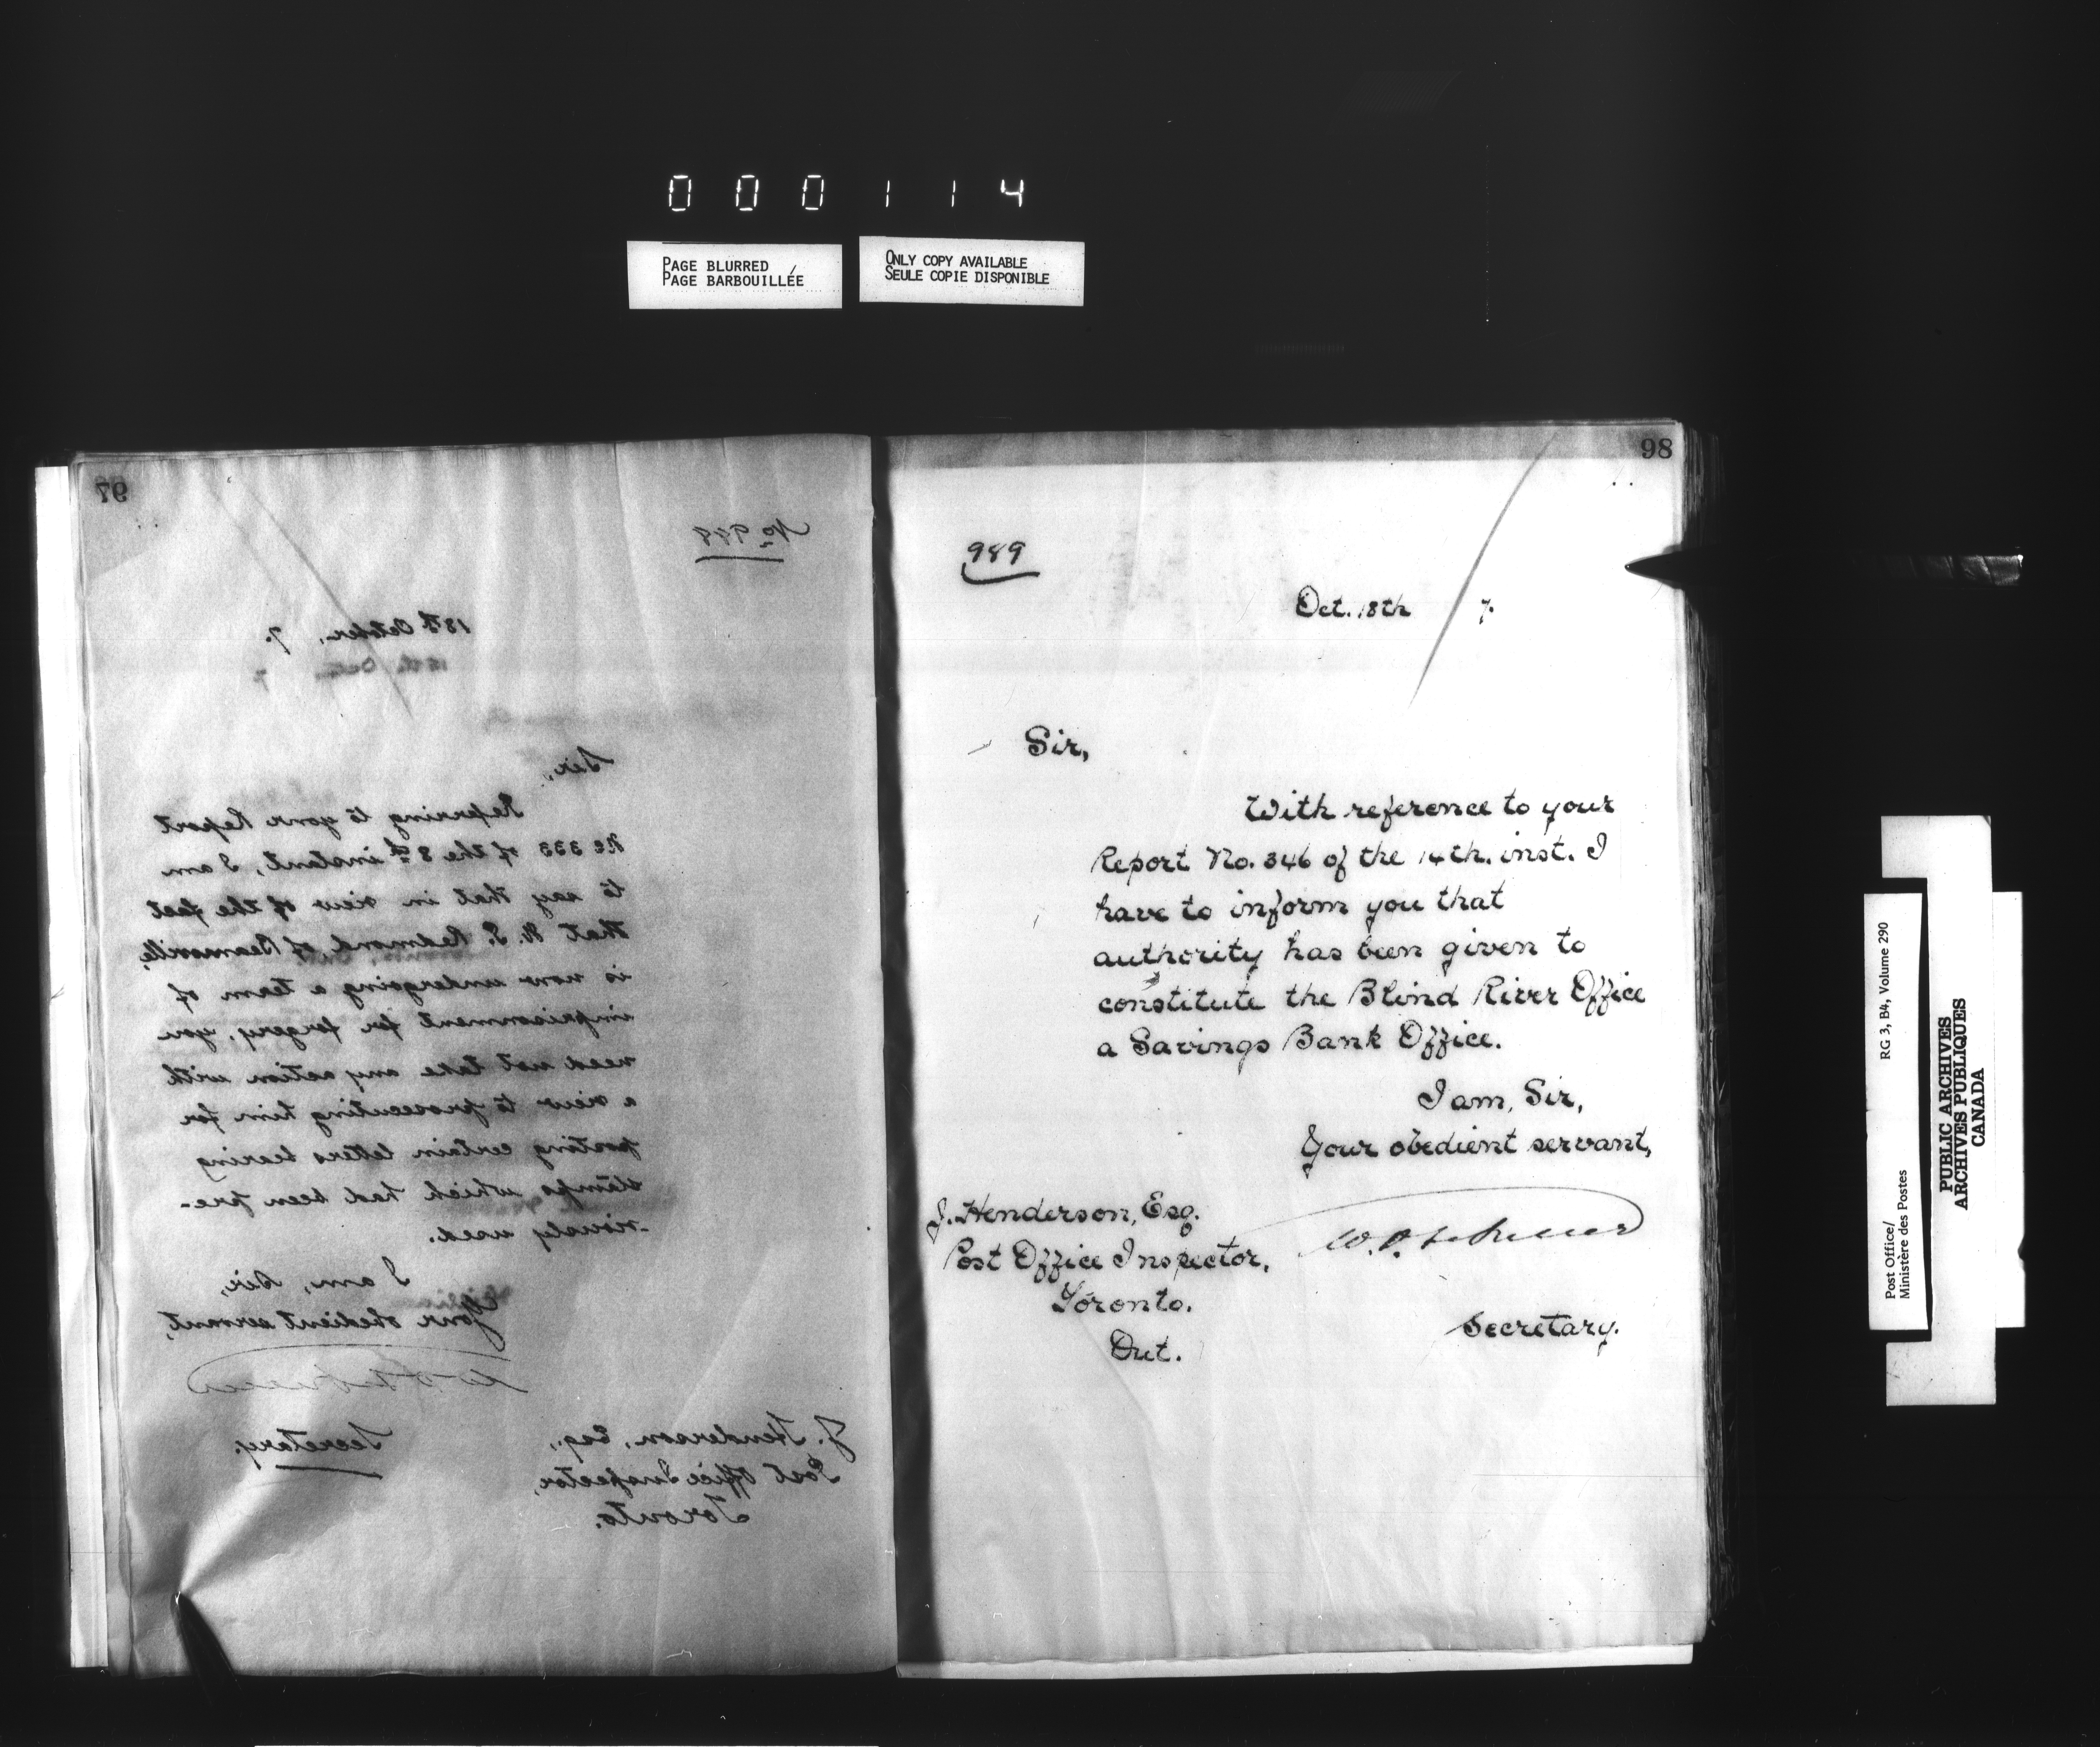 000114
PAGE BLURRED
PAGE BARBOUILLÉE
ONLY COPY AVAILABLE
SEULE COPIE DISPONIBLE
97
No 988
18th October, 7.
Sir,
Referring to your Report
No 333 of the 8th instant, I am
to say that in view of the fact
that Redmond, of Beamsville,
is now undergoing a term of
imprisonment for forgery, you
need not take any action with
a view to prosecuting him for
posting certain letters bearing
stamps which had been pre-
-viously used.
I am, Sir,
Your obedient servant,
Secretary.
J. Henderson, Esq.,
Post Office Inspector,
Toronto.
98
989
Oct. 18th 7.
Sir,
With reference to your
Report No. 346 of the 14th. inst. I
have to inform you that
authority has been given to
constitute the Blind River Office
a Savings Bank Office.
I am, Sir,
Your obedient servant,
J. Henderson, Esq.
Post Office Inspector,
Toronto.
Ont.
Secretary.
Post Office/
Ministère des Postes
RG 3, B4, Volume 290
PUBLIC ARCHIVES
ARCHIVES PUBLIQUES
CANADA